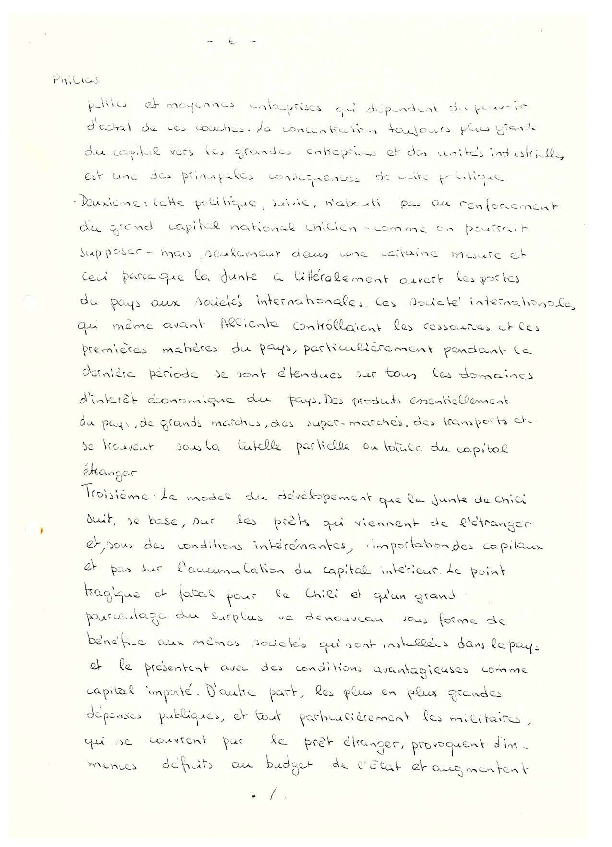 - 2 -
petites et moyennes entreprises qui dependent du pouvoir
d'achat de ces couches. La concentration toujours plus grande
du capital vers les grandes entreprises et des unités industrielles
est une des principales consequences de cette politique
Deuxième: Cette politique, suivie, n'abouti pas au renforcement
du grand capital national chilien - comme on pourrait
supposer - mais seulement dans une certaine mesure et
ceci parceque la Junte a littéralement ouvert les portes
du pays aux sociétés internationales. Ces Societé internationales,
qui même avant Alliente contrôllaient les ressources et les
premières matières du pays, particuliérement pendant la
dernière période se sont étendues sur tous les domaines
d'interêt économique du pays. Des produits essentiellement
du pays, de grands marchés, des super-marchés, des transports et-
se trouvent sous la tutelle partielle ou totale du capital
étranger
Troisième: Le model du développement que la Junte de Chili
suit, se base, sur les prêts qui viennent de l'étranger
et, sous des conditions intérénantes, importation des capitaux
et pas sur l'accumulation du capital intérieur. Le point
tragique et fatal pour le Chili et qu'un grand
pourcentage du surplus va denouveau sous forme de
bénéfice aux mêmes societés qui sont installées dans le pays
et le présentent avec des conditions avantagieuses comme
capital importé. D'autre part, les plus en plus grandes
dépenses publiques, et tout particuliérement les militaires,
qui se couvrent par le prêt étranger, provoquent d'im-
menses déficits au budget de l'État et augmentent
. /.